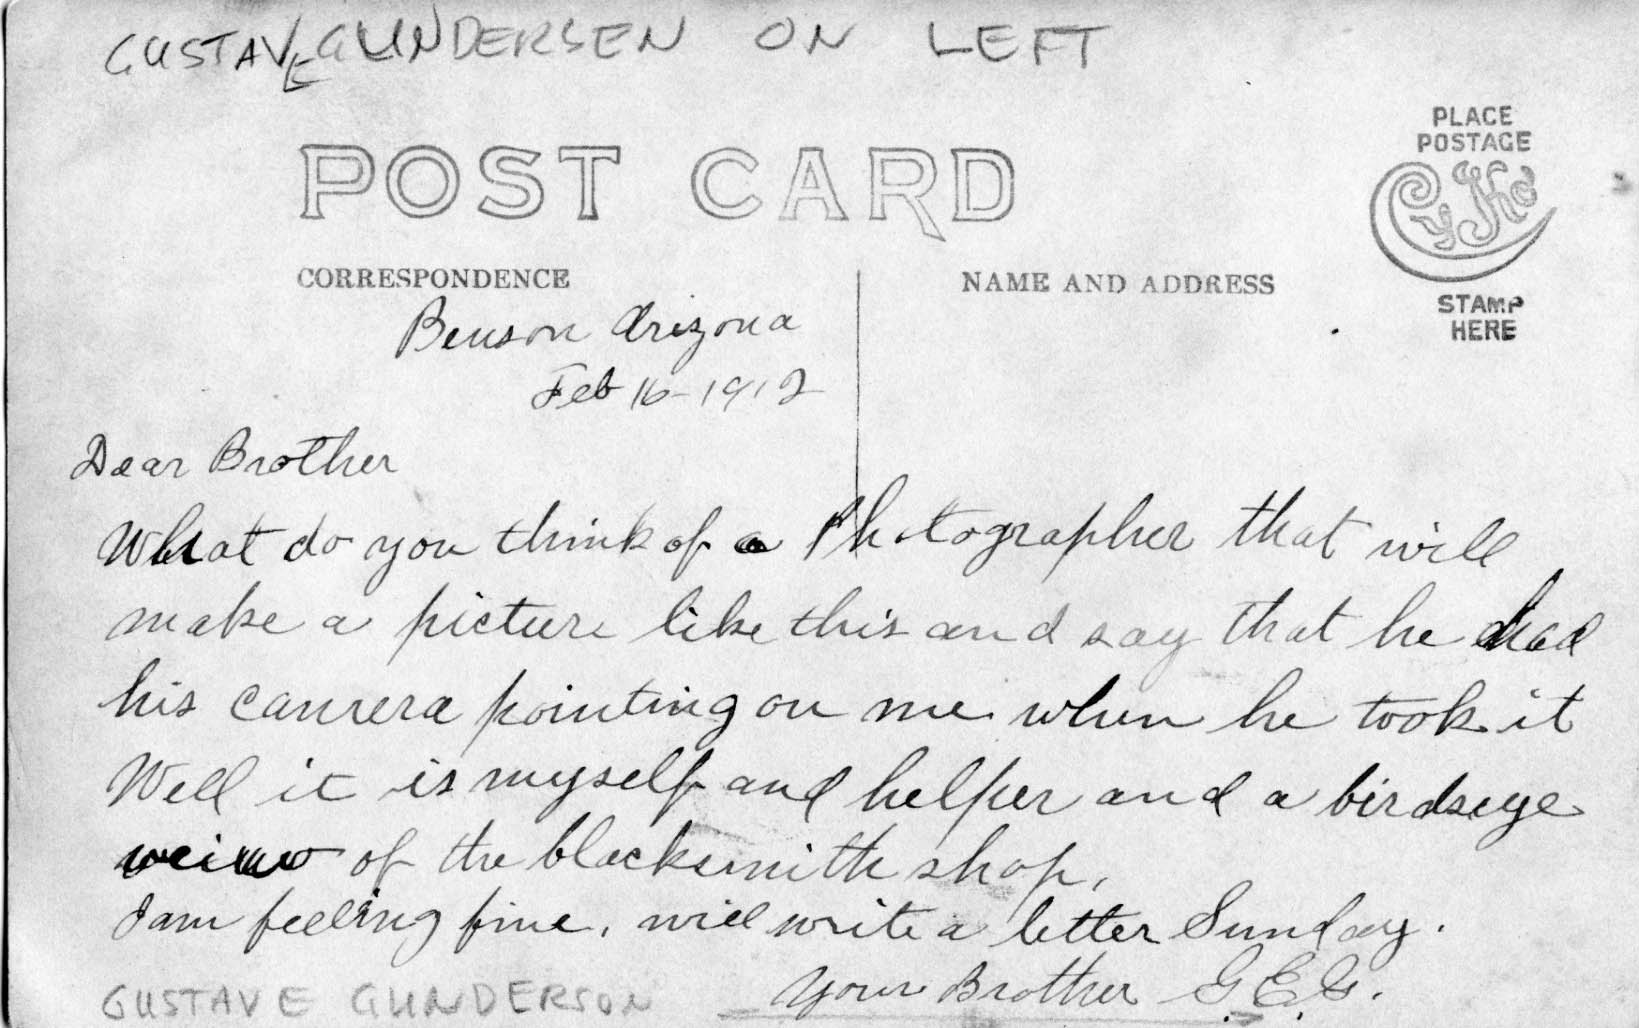 GUSTAVE GUNDERSEN ON LEFT
PLACE
POSTAGE
CYKO
STAMP
HERE
POST CARD
CORRESPONDENCE
NAME AND ADDRESS
Benson Arizona
Feb 16-1912
Dear Brother
What do you think of a Photographer that will
make a picture like this and say that he had
his camera pointing on me when he took it
Well it is myself and helper and a birdseye
weiw of the blacksmith shop.
I am feeling fine. will write a letter Sunday.
Your Brother G.E.G.
GUSTAVE GUNDERSON